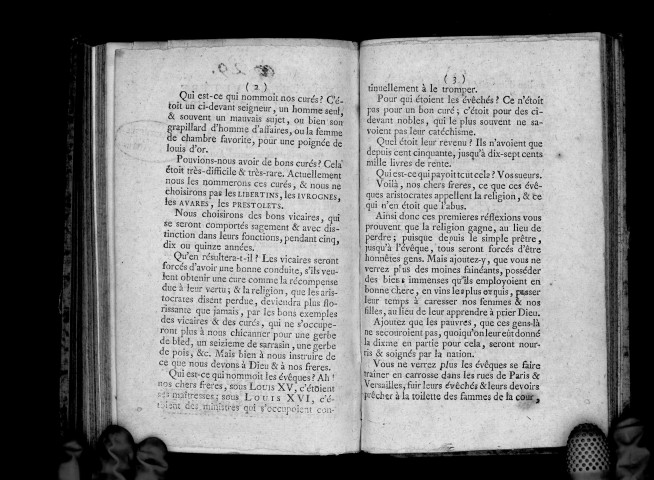 ( 2 )
Qui est-ce qui nommoit nos curés? C'é-
toit un ci-devant seigneur, un homme seul,
& souvent un mauvais sujet, ou bien son
grapillard d'homme d'affaires, ou la femme
de chambre favorite, pour une poignée de
louis d'or.
Pouvions-nous avoir de bons curés? Cela
étoit très-difficile & très-rare. Actuellement
nous les nommerons ces curés, & nous ne
choisirons pas les LIBERTINS, les IVROGNES,
les AVARES, les PRESTOLETS.
Nous choisirons des bons vicaires, qui
se seront comportés sagement & avec dis-
tinction dans leurs fonctions, pendant cinq,
dix ou quinze années.
Qu'en résultera-t-il? Les vicaires seront
forcés d'avoir une bonne conduite, s'ils veu-
lent obtenir une cure comme la récompense
due à leur vertu; & la religion, que les aris-
tocrates disent perdue, deviendra plus flo-
rissante que jamais, par les bons exemples
des vicaires & des curés, qui ne s'occupe-
ront plus à nous chicanner pour une gerbe
de bled, un seizieme de sarrasin, une gerbe
de pois, &c. Mais bien à nous instruire de
ce que nous devons à Dieu & à nos freres.
Qui est-ce qui nommoit les évêques? Ah!
nos chers freres, sous LOUIS XV, c'étoient
ses maîtresses; sous LOUIS XVI, c'é-
toient des ministres qui s'occupoient con-
( 3 )
tinuellement à le tromper.
Pour qui étoient les évêchés? Ce n'étoit
pas pour un bon curé; c'étoit pour des ci-
devant nobles, qui le plus souvent ne sa-
voient pas leur catéchisme.
Quel étoit leur revenu? Ils n'avoient que
depuis cent cinquante, jusqu'à dix-sept cents
mille livres de rente.
Qui est-ce qui payoit tout cela? Vos sueurs.
Voilà, nos chers freres, ce que ces évê-
ques aristocrates appellent la religion, & ce
qui n'en étoit que l'abus.
Ainsi donc ces premieres réflexions vous
prouvent que la religion gagne, au lieu de
perdre; puisque depuis le simple prêtre,
jusqu'à l'évêque, tous seront forcés d'être
honnêtes gens. Mais ajoutez-y, que vous ne
verrez plus des moines fainéants, posséder
des biens immenses qu'ils employoient en
bonne chere, en vins les plus exquis, passer
leur temps à caresser nos femmes & nos
filles, au lieu de leur apprendre à prier Dieu.
Ajoutez que les pauvres, que ces gens-là
ne secouroient pas, quoiqu'on leur eût donné
la dixme en partie pour cela, seront nour-
ris & soignés par la nation.
Vous ne verrez plus les évêques se faire
trainer en carrosse dans les rues de Paris &
Versailles, fuir leurs évêchés & leurs devoirs
prêcher à la toilette des fammes de la cour,